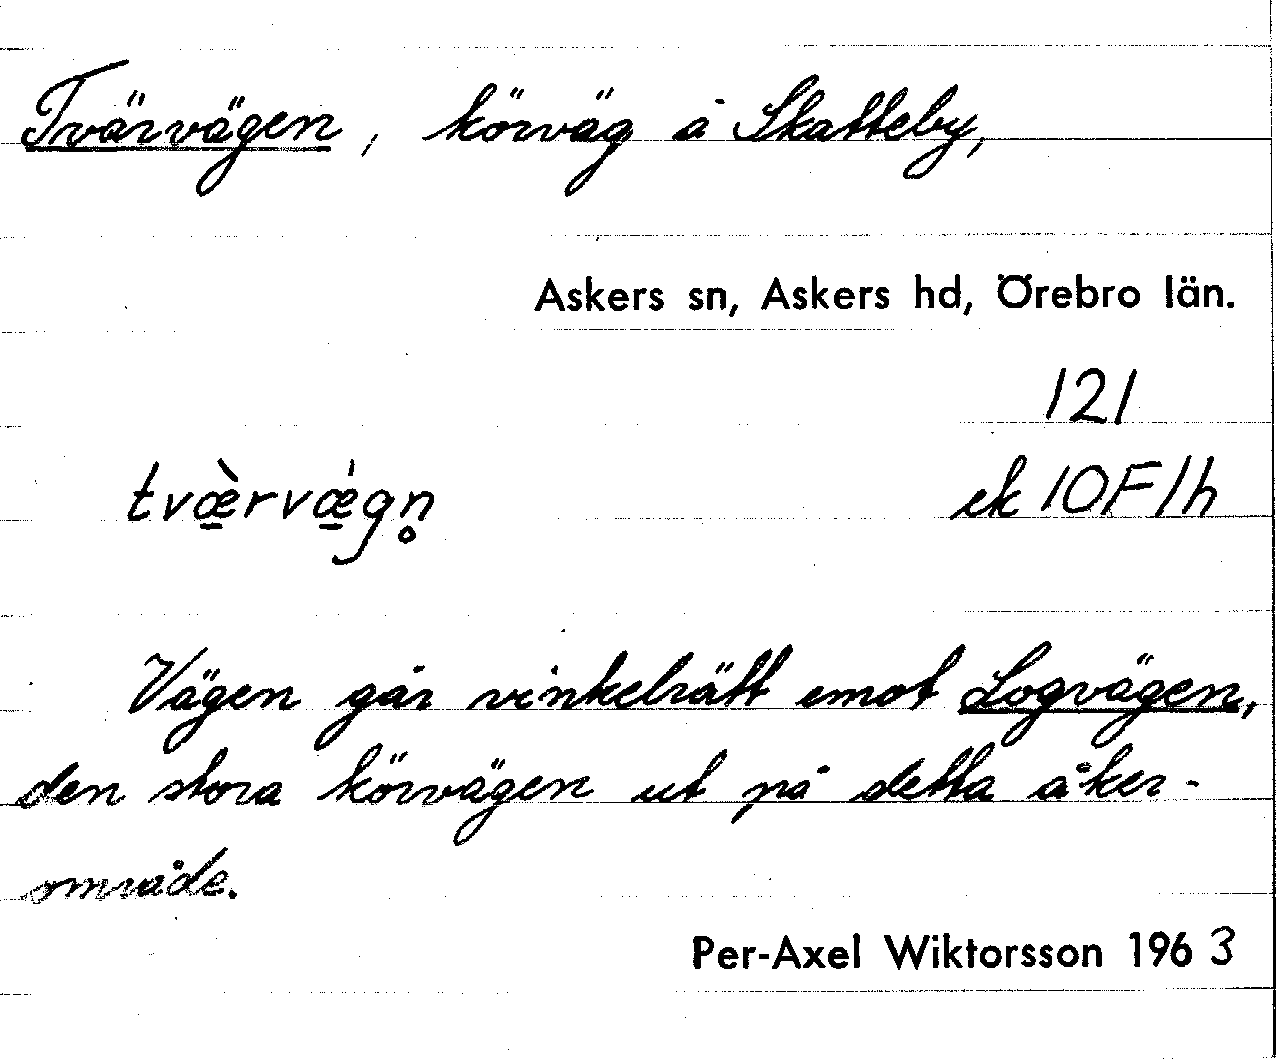 Tvärvägen, körväg å Skatteby,
Askers sn, Askers hd, Örebro län.
121
tvæ̱̀rvǽ̱gn̥ ek 10F1h
Vägen går vinkelrätt emot Logvägen,
den stora körvägen ut på detta åker-
område.
Per-Axel Wiktorsson 1963